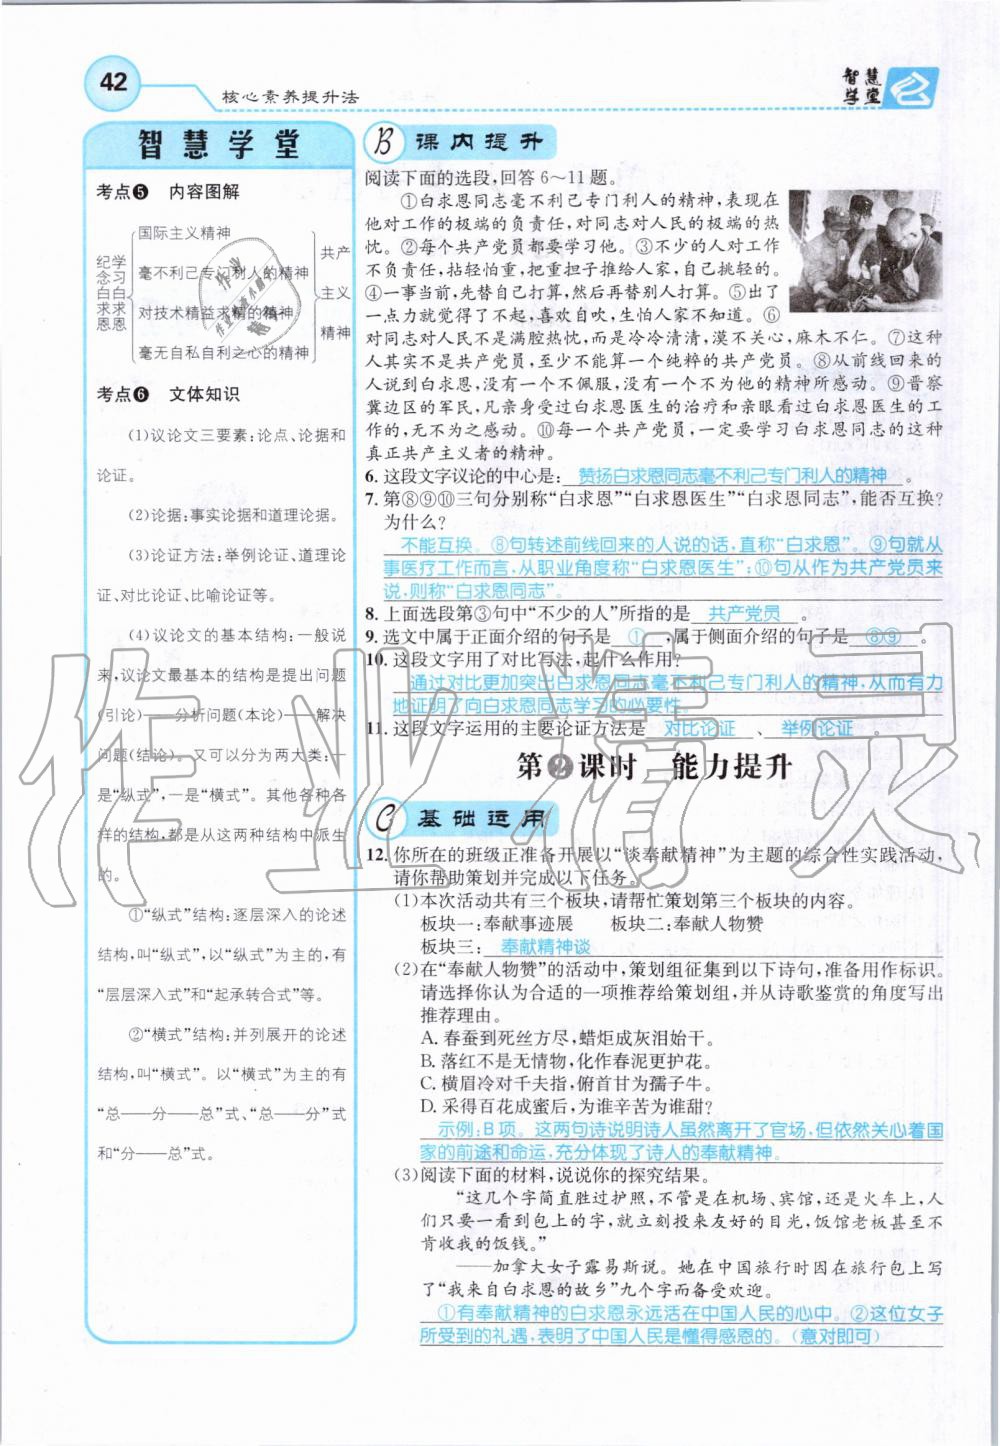 42
核心素养提升法
智慧
学堂
智慧学堂
考点❺ 内容图解
学习白求恩
纪念白求恩
国际主义精神
毫不利己专门利人的精神
对技术精益求精的精神
毫无自私自利之心的精神
共产
主义
精神
考点❻ 文体知识
(1)议论文三要素:论点、论据和
论证。
(2)论据:事实论据和道理论据。
(3)论证方法:举例论证、道理论
证、对比论证、比喻论证等。
(4)议论文的基本结构:一般说
来,议论文最基本的结构是提出问题
(引论)——分析问题(本论)——解决
问题(结论)。又可以分为两大类:一
是“纵式”,一是“横式”。其他各种各
样的结构,都是从这两种结构中派生
的。
①“纵式”结构:逐层深入的论述
结构,叫“纵式”,以“纵式”为主的,有
“层层深入式”和“起承转合式”等。
②“横式”结构:并列展开的论述
结构,叫“横式”。以“横式”为主的有
“总——分——总”式、“总——分”式
和“分——总”式。
B 课内提升
阅读下面的选段,回答6～11题。
①白求恩同志毫不利己专门利人的精神,表现在
他对工作的极端的负责任,对同志对人民的极端的热
忱。②每个共产党员都要学习他。③不少的人对工作
不负责任,拈轻怕重,把重担子推给人家,自己挑轻的。
④一事当前,先替自己打算,然后再替别人打算。⑤出了
一点力就觉得了不起,喜欢自吹,生怕人家不知道。⑥
对同志对人民不是满腔热忱,而是冷冷清清,漠不关心,麻木不仁。⑦这种
人其实不是共产党员,至少不能算一个纯粹的共产党员。⑧从前线回来的
人说到白求恩,没有一个不佩服,没有一个不为他的精神所感动。⑨晋察
冀边区的军民,凡亲身受过白求恩医生的治疗和亲眼看过白求恩医生的工
作的,无不为之感动。⑩每一个共产党员,一定要学习白求恩同志的这种
真正共产主义者的精神。
6. 这段文字议论的中心是: 赞扬白求恩同志毫不利己专门利人的精神 。
7. 第⑧⑨⑩三句分别称“白求恩”“白求恩医生”“白求恩同志”,能否互换?
为什么?
不能互换。⑧句转述前线回来的人说的话,直称“白求恩”。⑨句就从
事医疗工作而言,从职业角度称“白求恩医生”;⑩句从作为共产党员来
说,则称“白求恩同志”。
8. 上面选段第③句中“不少的人”所指的是 共产党员 。
9. 选文中属于正面介绍的句子是 ① ,属于侧面介绍的句子是 ⑧⑨ 。
10. 这段文字用了对比写法,起什么作用?
通过对比更加突出白求恩同志毫不利己专门利人的精神,从而有力
地证明了向白求恩同志学习的必要性。
11. 这段文字运用的主要论证方法是 对比论证 、 举例论证 。
第❷课时 能力提升
C 基础运用
12. 你所在的班级正准备开展以“谈奉献精神”为主题的综合性实践活动,
请你帮助策划并完成以下任务。
(1)本次活动共有三个板块,请帮忙策划第三个板块的内容。
板块一:奉献事迹展 板块二:奉献人物赞
板块三: 奉献精神谈
(2)在“奉献人物赞”的活动中,策划组征集到以下诗句,准备用作标识。
请选择你认为合适的一项推荐给策划组,并从诗歌鉴赏的角度写出
推荐理由。
A. 春蚕到死丝方尽,蜡炬成灰泪始干。
B. 落红不是无情物,化作春泥更护花。
C. 横眉冷对千夫指,俯首甘为孺子牛。
D. 采得百花成蜜后,为谁辛苦为谁甜?
示例:B项。这两句诗说明诗人虽然离开了官场,但依然关心着国
家的前途和命运,充分体现了诗人的奉献精神。
(3)阅读下面的材料,说说你的探究结果。
“这几个字简直胜过护照,不管是在机场、宾馆,还是火车上,人
们只要一看到包上的字,就立刻投来友好的目光,饭馆老板甚至不
肯收我的饭钱。”
——加拿大女子露易斯说。她在中国旅行时因在旅行包上写
了“我来自白求恩的故乡”九个字而备受欢迎。
①有奉献精神的白求恩永远活在中国人民的心中。②这位女子
所受到的礼遇,表明了中国人民是懂得感恩的。(意对即可)
作业精灵